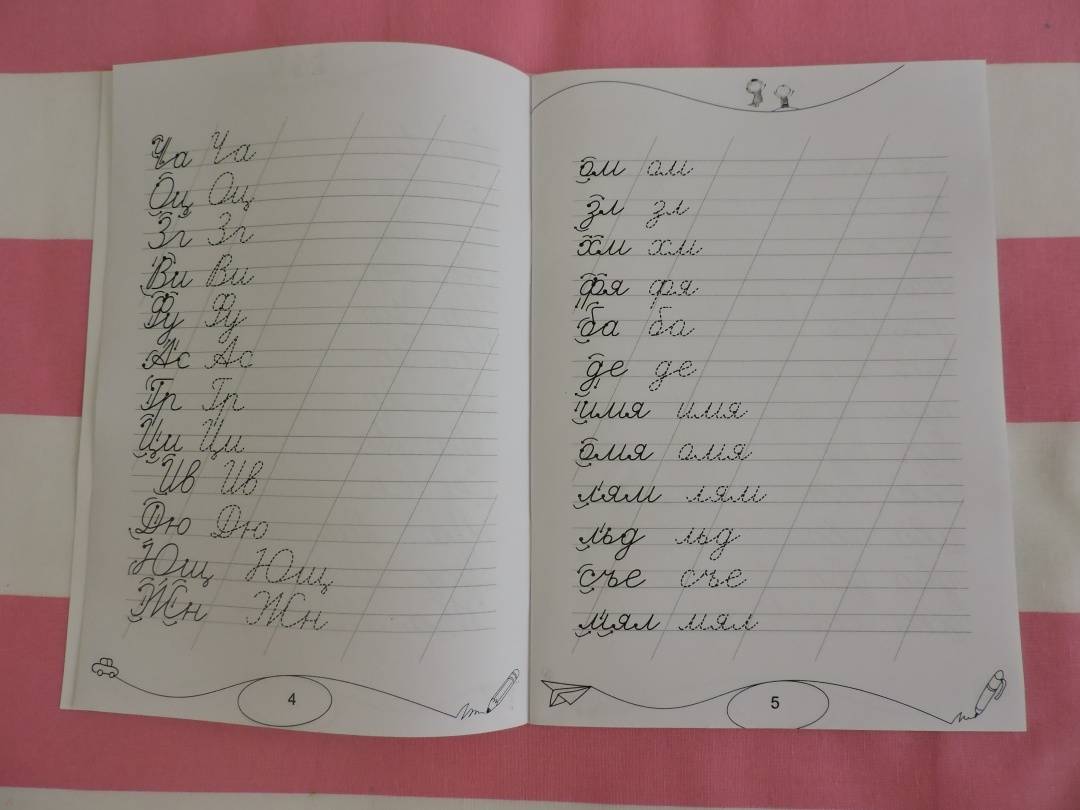 Ча Ча
Ощ Ощ
Зг Зг
Ви Ви
Фу Фу
Ас Ас
Гр Гр
Ци Ци
Ив Ив
Дю Дю
Ющ Ющ
Жн Жн
4
ом ом
зл зл
хм хм
фя фя
ба ба
де де
имя имя
омя омя
лям лям
льд льд
съе съе
мял мял
5